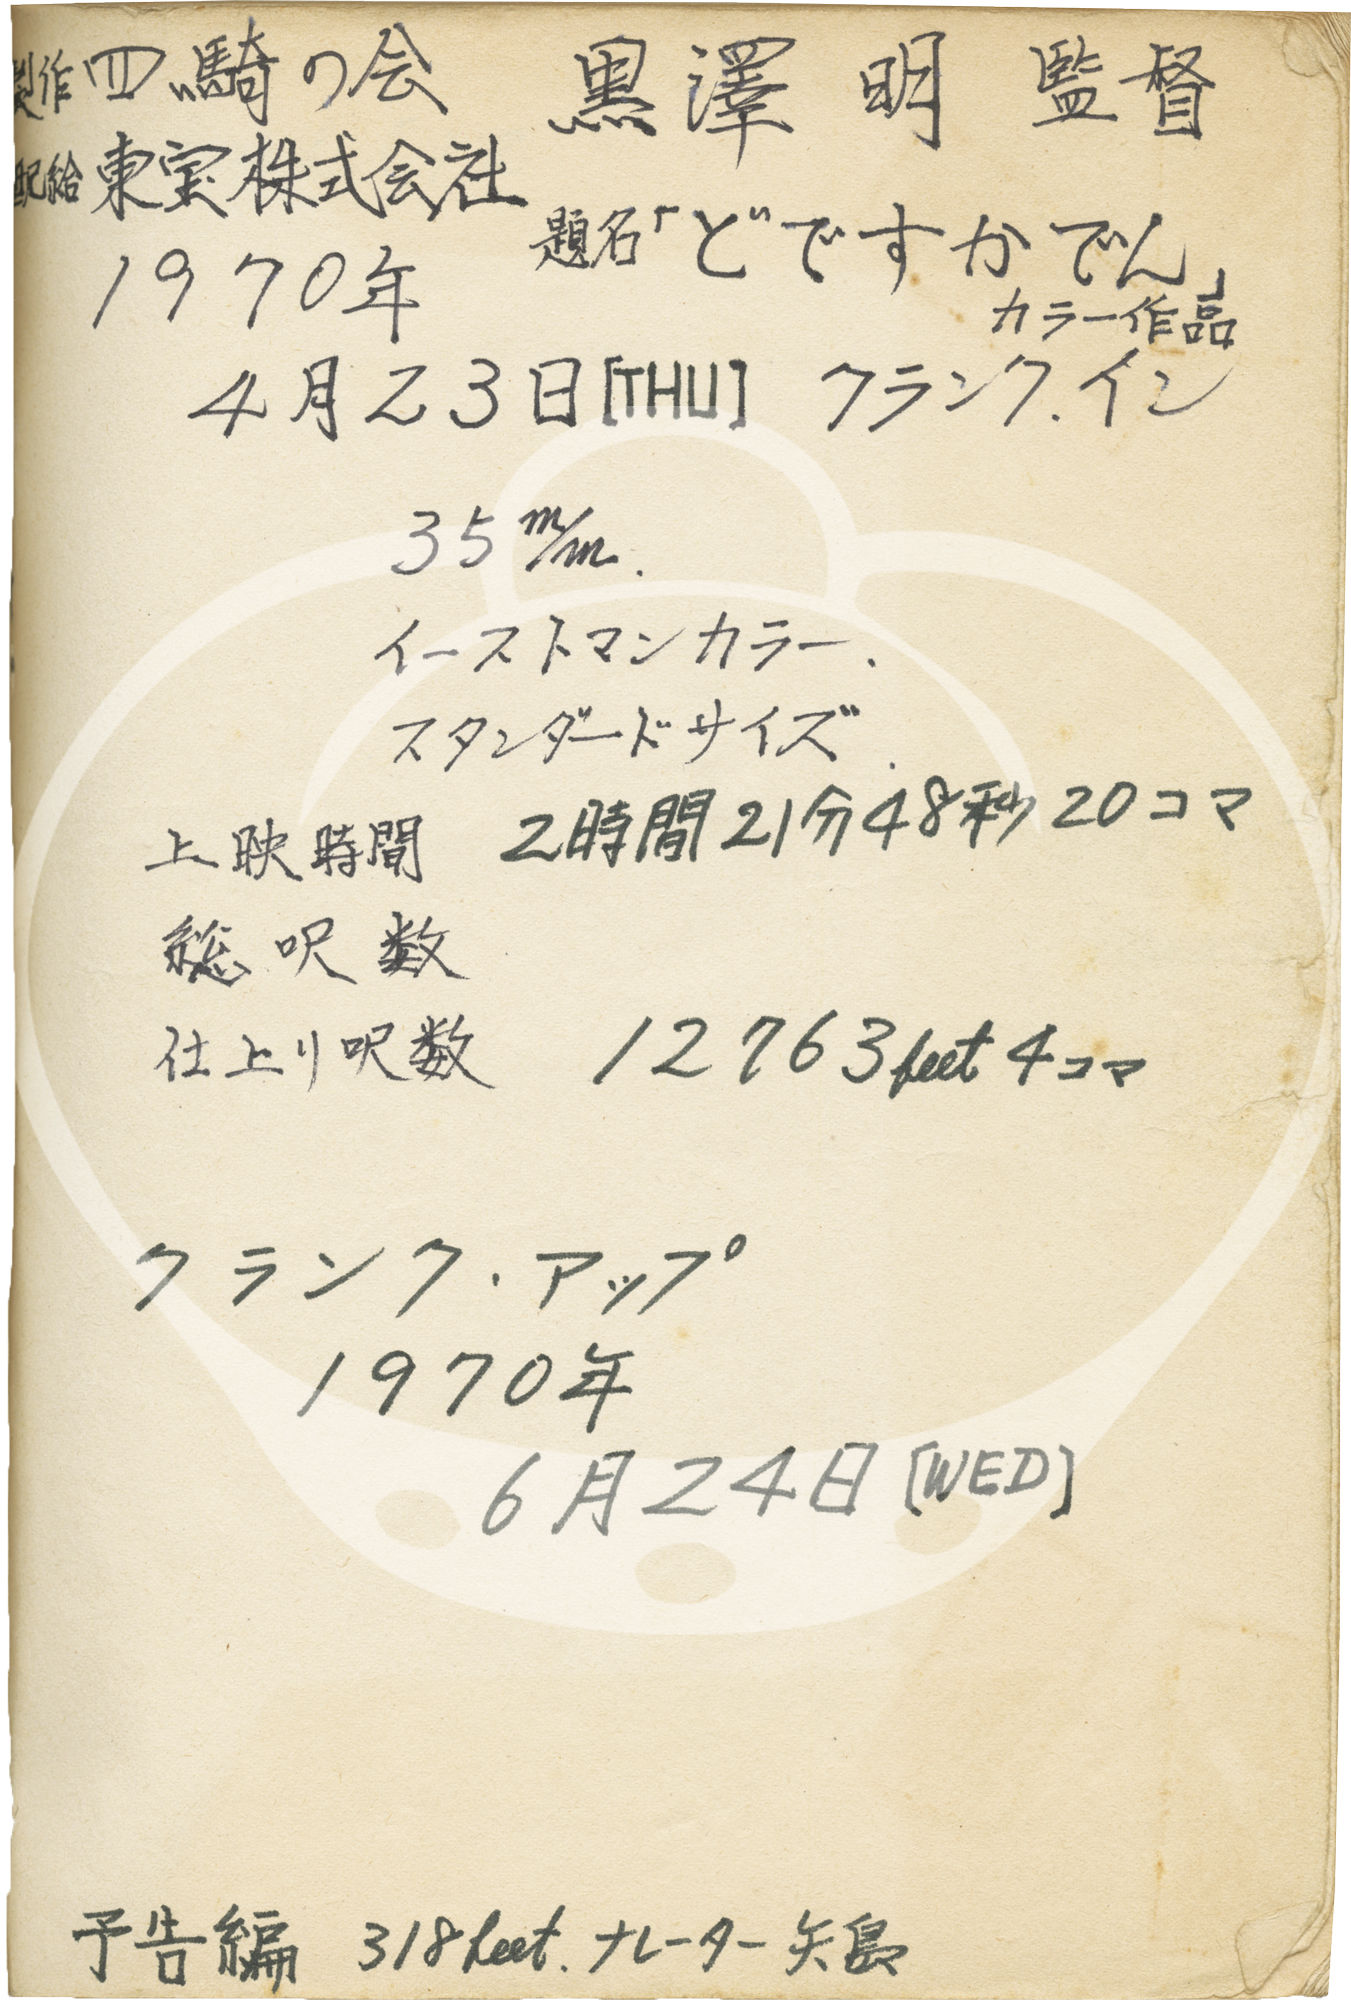 製作 四騎の会 黒澤 明 監督
配給 東宝株式会社
題名「どですかでん」
カラー作品
1970年
4月23日[THU] クランク.イン
35m/m.
イーストマンカラー.
スタンダードサイズ.
上映時間 2時間21分48秒20コマ
総呎数
仕上り呎数 12763feet4コマ
クランク.アップ
1970年
6月24日[WED]
予告編 318feet.ナレーター矢島